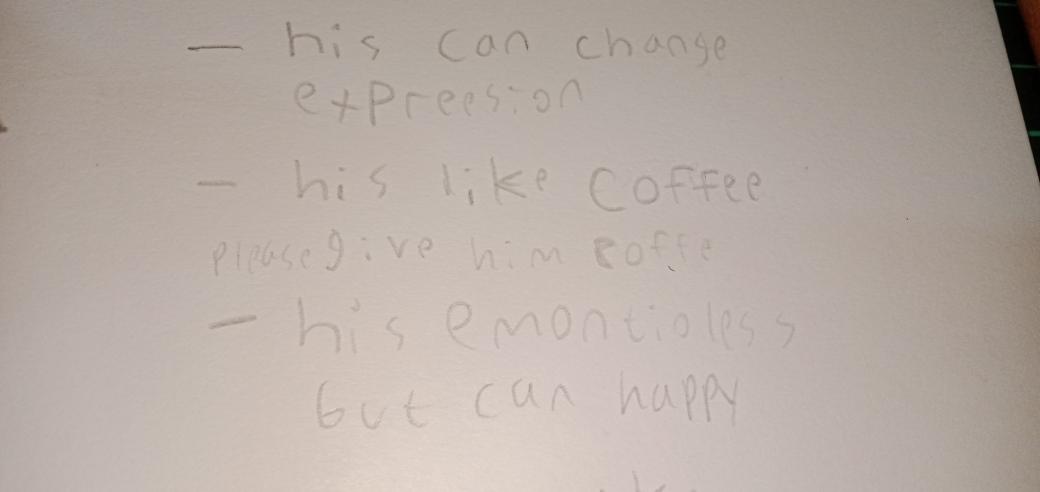 - his can change
expreesion
- his like Coffee
please give him coffe
- his emontioless
but can happy